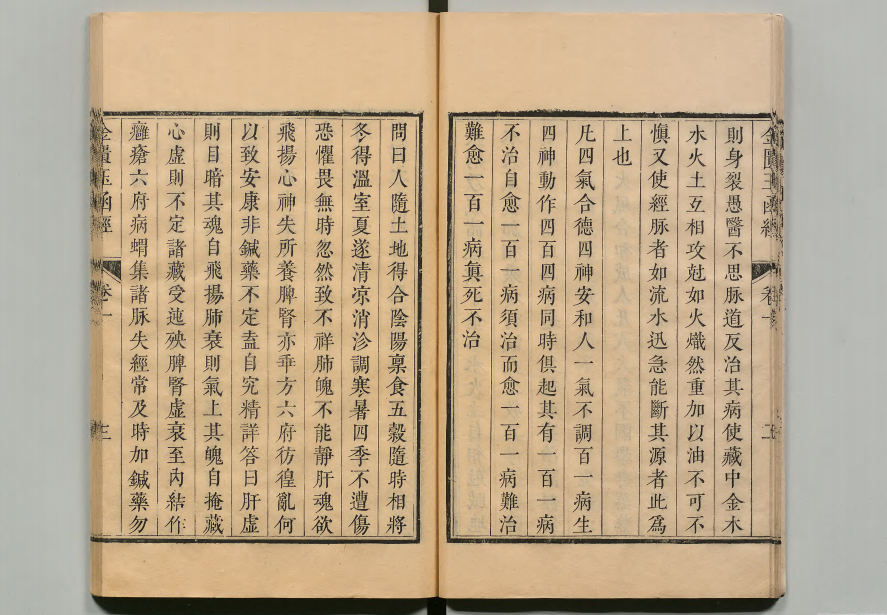 金匱玉函經 卷一 二
則身裂愚醫不思脉道反治其病使藏中金木
水火土互相攻尅如火熾然重加以油不可不
慎又使經脉者如流水迅急能斷其源者此為
上也
凡四氣合德四神安和人一氣不調百一病生
四神動作四百四病同時俱起其有一百一病
不治自愈一百一病須治而愈一百一病難治
難愈一百一病眞死不治
問曰人隨土地得合陰陽稟食五穀隨時相將
冬得溫室夏遂清凉消沴調寒暑四季不遭傷
恐懼畏無時忽然致不祥肺魄不能靜肝魂欲
飛揚心神失所養脾腎亦乖方六府彷徨亂何
以致安康非鍼藥不定盍自究精詳答曰肝虛
則目暗其魂自飛揚肺衰則氣上其魄自掩藏
心虛則不定諸藏受迍殃脾腎虛衰至內結作
癰瘡六府病蝟集諸脉失經常及時加鍼藥勿
金匱玉函經 卷一 三